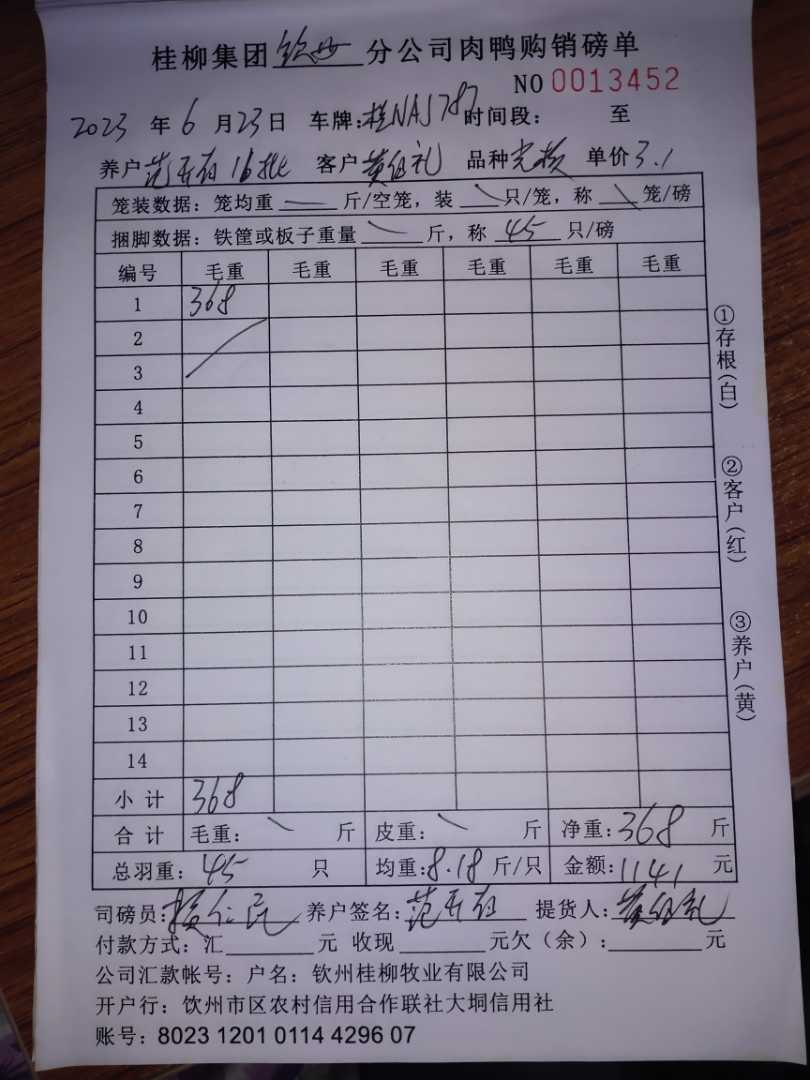 桂柳集团钦州分公司肉鸭购销磅单
NO 0013452
2023 年 6 月 23 日 车牌:桂NAS787 时间段: 至
养户 范 16批 客户 黄 礼 品种 单价 3.1
笼装数据:笼均重 斤/空笼,装 只/笼,称 笼/磅
捆脚数据:铁筐或板子重量 斤,称 45 只/磅
编号 毛重 毛重 毛重 毛重 毛重 毛重
1 368
2
3
4
5
6
7
8
9
10
11
12
13
14
小计 368
合计 毛重: 斤 皮重: 斤 净重:368 斤
总羽重:45 只 均重:8.18 斤/只 金额:1141 元
司磅员: 养户签名:范 提货人:黄 礼
付款方式:汇 元 收现 元欠(余): 元
公司汇款帐号:户名:钦州桂柳牧业有限公司
开户行:钦州市区农村信用合作联社大垌信用社
账号:8023 1201 0114 4296 07
①存根(白)
②客户(红)
③养户(黄)